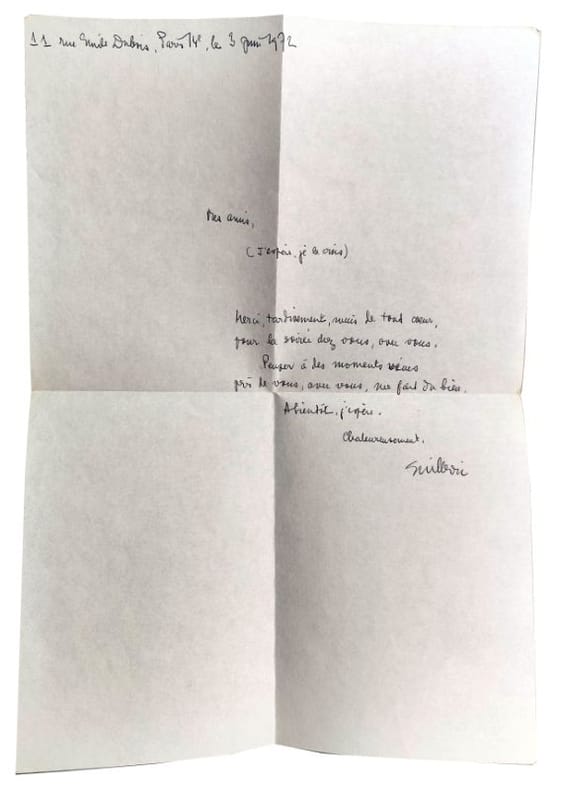 11 rue Emile Dubois, Paris 14e, le 3 juin 1972
Mes amis,
(J'espère, je le crois)
Merci, tardivement, mais de tout cœur,
pour la soirée chez vous, avec vous.
Penser à des moments vécus
près de vous, avec vous, me fait du bien.
A bientôt, j'espère.
Chaleureusement.
Guillevic